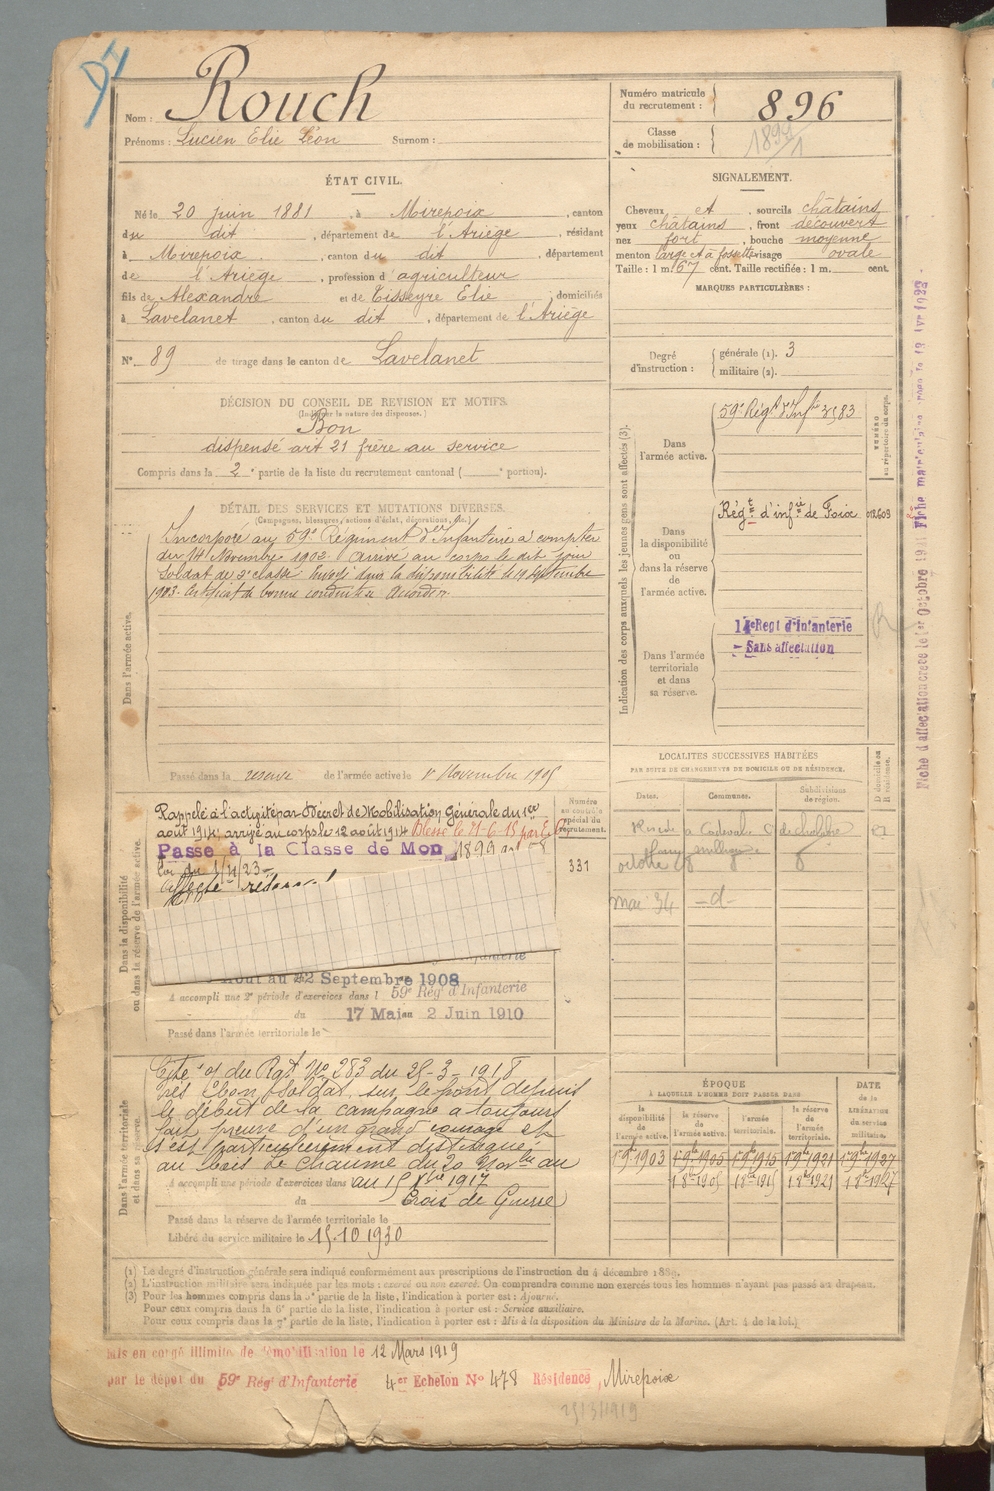 DI
Nom : Rouch
Prénoms : Lucien Elie Léon Surnom :
Numéro matricule du recrutement : 896
Classe de mobilisation : 1899/1
ÉTAT CIVIL.
Né le 20 juin 1881, à Mirepoix, canton
du dit, département de l'Ariège, résidant
à Mirepoix, canton du dit, département
de l'Ariège, profession d'agriculteur
fils de Alexandre et de Tisseyre Elie, domiciliés
à Lavelanet, canton du dit, département de l'Ariège
N° 89 de tirage dans le canton de Lavelanet
SIGNALEMENT.
Cheveux et, sourcils châtains
yeux châtains, front découvert
nez fort, bouche moyenne
menton large et à fossette visage ovale
Taille : 1 m. 67 cent. Taille rectifiée : 1 m. cent.
MARQUES PARTICULIÈRES :
Degré d'instruction : générale (1). 3
militaire (2).
DÉCISION DU CONSEIL DE REVISION ET MOTIFS.
(Indiquer la nature des dispenses.)
Bon
dispensé art 21 frère au service
Compris dans la 2e partie de la liste du recrutement cantonal ( e portion).
DÉTAIL DES SERVICES ET MUTATIONS DIVERSES.
(Campagnes, blessures, actions d'éclat, décorations, etc.)
Dans l'armée active.
Incorporé au 59e Régiment d'Infanterie à compter
du 14 Novembre 1902. Arrivé au corps le dit jour
soldat de 2e classe. Envoyé dans la disponibilité le 19 Septembre
1903. Certificat de bonne conduite accordé.
Passé dans la réserve de l'armée active le 1er Novembre 1905
Indication des corps auxquels les jeunes gens sont affectés (3).
NUMÉRO au répertoire du corps.
Dans l'armée active.
59e Régt d'Infie 3983
Dans la disponibilité ou dans la réserve de l'armée active.
Régt d'infie de Foix 012.603
Dans l'armée territoriale et dans sa réserve.
14e Regt d'Infanterie
- Sans affectation
LOCALITÉS SUCCESSIVES HABITÉES
PAR SUITE DE CHANGEMENTS DE DOMICILE OU DE RÉSIDENCE.
Dates. Communes. Subdivisions de région. D domicile ou R résidence.
octobre
mai 34 - d -
Dans la disponibilité ou dans la réserve de l'armée active.
Numéro au contrôle spécial du recrutement.
331
Rappelé à l'activité par Décret de Mobilisation Générale du 1er
août 1914 arrivé au corps le 12 août 1914 Blessé le 21-6-15 par
Passé à la Classe de Mon 1899 art 58
Loi du 1/4/23
Infanterie
Aout au 22 Septembre 1908
A accompli une 2e période d'exercices dans l 59e Rég d'Infanterie
du 17 Mai au 2 Juin 1910
Passé dans l'armée territoriale le
Dans l'armée territoriale et dans sa réserve.
Cité o/ du Rgt No 283 du 25-3-1918
Très bon soldat, sur le front depuis
le début de la campagne a toujours
fait preuve d'un grand courage et
s'est particulièrement distingué
au bois Le Chaume du 20 Novbre au
A accompli une période d'exercices dans au 15 Xbre 1917
du Croix de Guerre
Passé dans la réserve de l'armée territoriale le
Libéré du service militaire le 15.10 1930
ÉPOQUE
À LAQUELLE L'HOMME DOIT PASSER DANS
la disponibilité de l'armée active. la réserve de l'armée active. l'armée territoriale. la réserve de l'armée territoriale.
DATE de la LIBÉRATION du service militaire.
1903 1905 1915 1921 1927
1 8bre 1905 1 8bre 1915 1 8bre 1921 1 8bre 1927
(1) Le degré d'instruction générale sera indiqué conformément aux prescriptions de l'instruction du 4 décembre 1889.
(2) L'instruction militaire sera indiquée par les mots : exercé ou non exercé. On comprendra comme non exercés tous les hommes n'ayant pas passé au drapeau.
(3) Pour les hommes compris dans la 5e partie de la liste, l'indication à porter est : Ajourné.
Pour ceux compris dans la 6e partie de la liste, l'indication à porter est : Service auxiliaire.
Pour ceux compris dans la 7e partie de la liste, l'indication à porter est : Mis à la disposition du Ministre de la Marine. (Art. 4 de la loi.)
Mis en congé illimité de démobilisation le 12 Mars 1919
par le dépôt du 59e Rég d'Infanterie 4er Echelon No 478 Résidence, Mirepoix
25/3/1919
Fiche d'affectation créée le 1er Octobre 1921 Fiche matriculaire